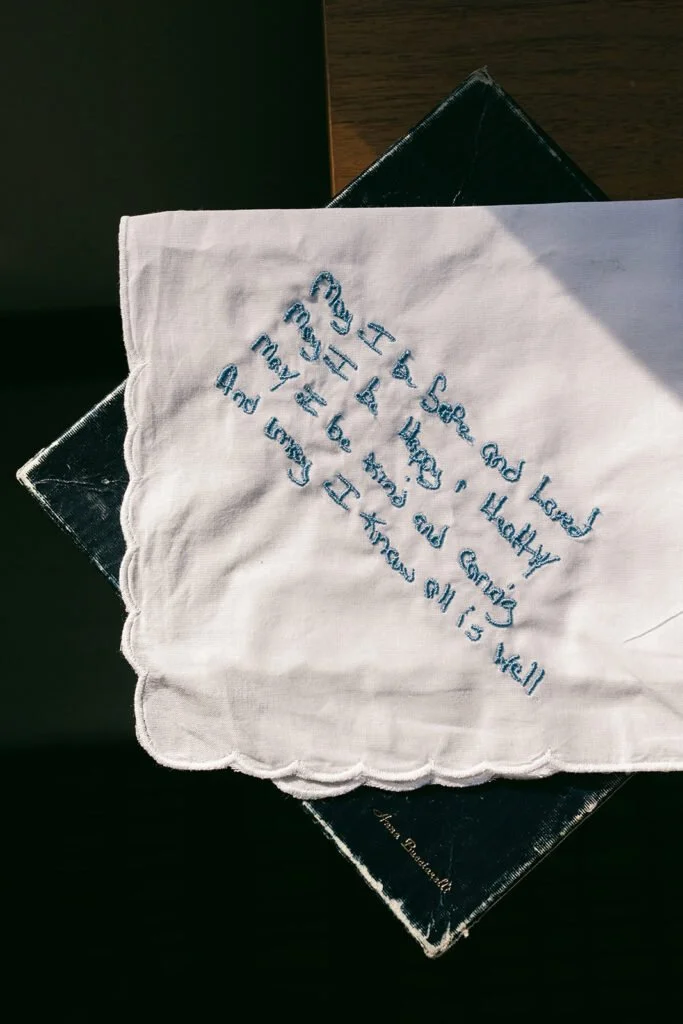 May I be Safe and Loved
May I be Happy, Healthy
May I be Kind and Caring
And may I Know all is Well
Anna